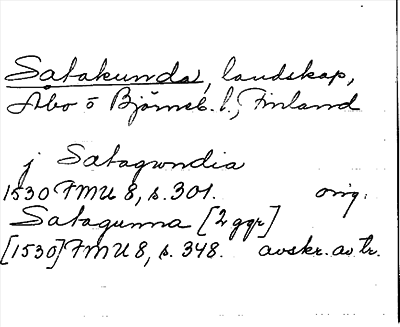 Satakunda, landskap,
Åbo o Björneb. l., Finland
j Satagundia
1530 FMU 8, s. 301. orig.
Satagunna [2 ggr]
[1530] FMU 8, s. 348. avskr. av tr.